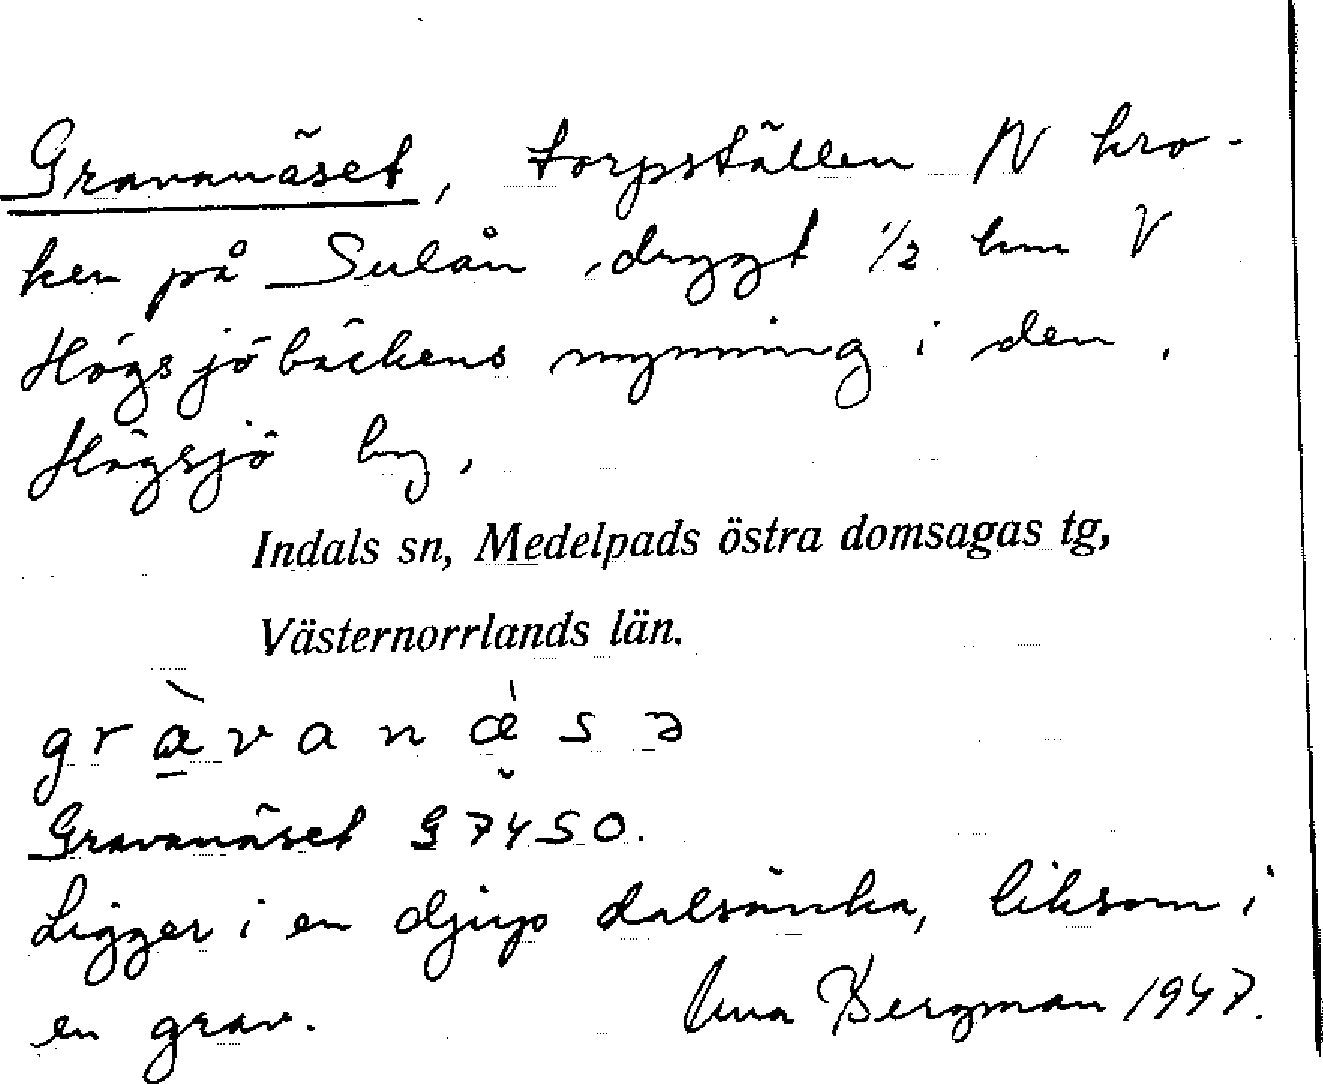 Gravanäset, torpställen N kro-
ken på Sulån, drygt 1/2 km V
Högsjöbäckens mynning i den,
Högsjö by.
Indals sn, Medelpads östra domsagas tg,
Västernorrlands län.
gràvanǽsə
Gravanäset G 7450.
Ligger i en djup dalsänka, liksom i
en grav. Bergman 1947.